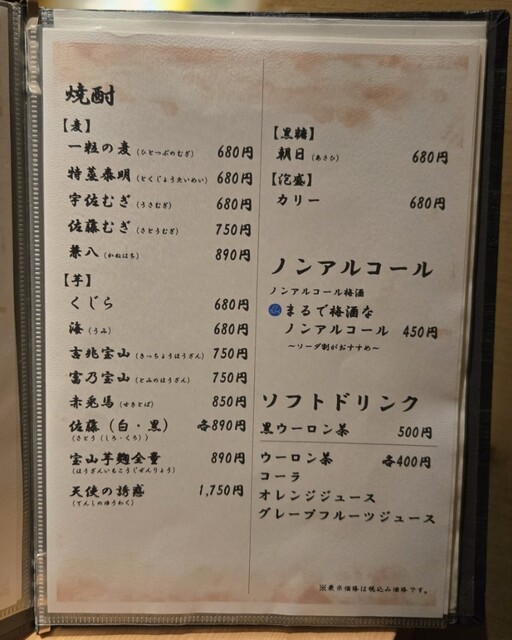 焼酎
【麦】
一粒の麦 (ひとつぶのむぎ) 680円
特蒸泰明 (とくじょうたいめい) 680円
宇佐むぎ (うさむぎ) 680円
佐藤むぎ (さとうむぎ) 750円
兼八 (かねはち) 890円
【芋】
くじら 680円
海 (うみ) 680円
吉兆宝山 (きっちょうほうざん) 750円
富乃宝山 (とみのほうざん) 750円
赤兎馬 (せきとば) 850円
佐藤 (白・黒) 各890円
(さとう (しろ・くろ))
宝山芋麹全量 890円
(ほうざんいもこうじぜんりょう)
天使の誘惑 1,750円
(てんしのゆうわく)
【黒糖】
朝日 (あさひ) 680円
【泡盛】
カリー 680円
ノンアルコール
ノンアルコール梅酒
まるで梅酒な
ノンアルコール 450円
〜ソーダ割がおすすめ〜
ソフトドリンク
黒ウーロン茶 500円
ウーロン茶 各400円
コーラ
オレンジジュース
グレープフルーツジュース
※表示価格は税込み価格です。